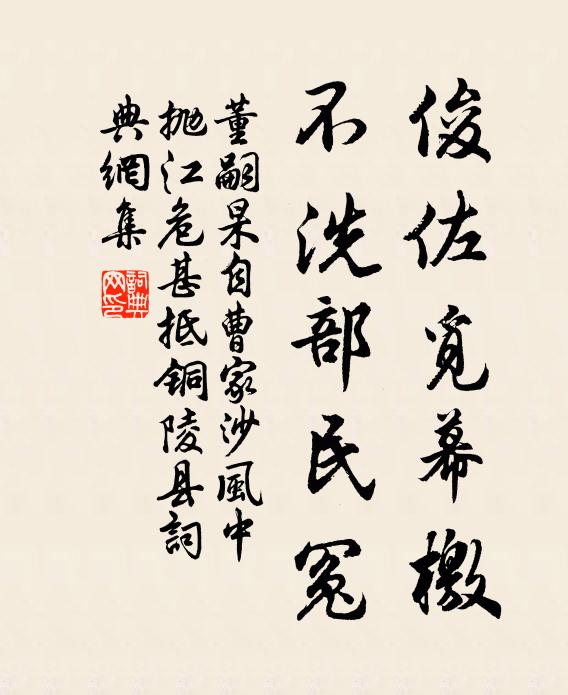 俊佐覓幕檄
不洗部民冤
董嗣杲自曹家沙風中
抛江危甚抵銅陵县詞
典網集
詞典
网印